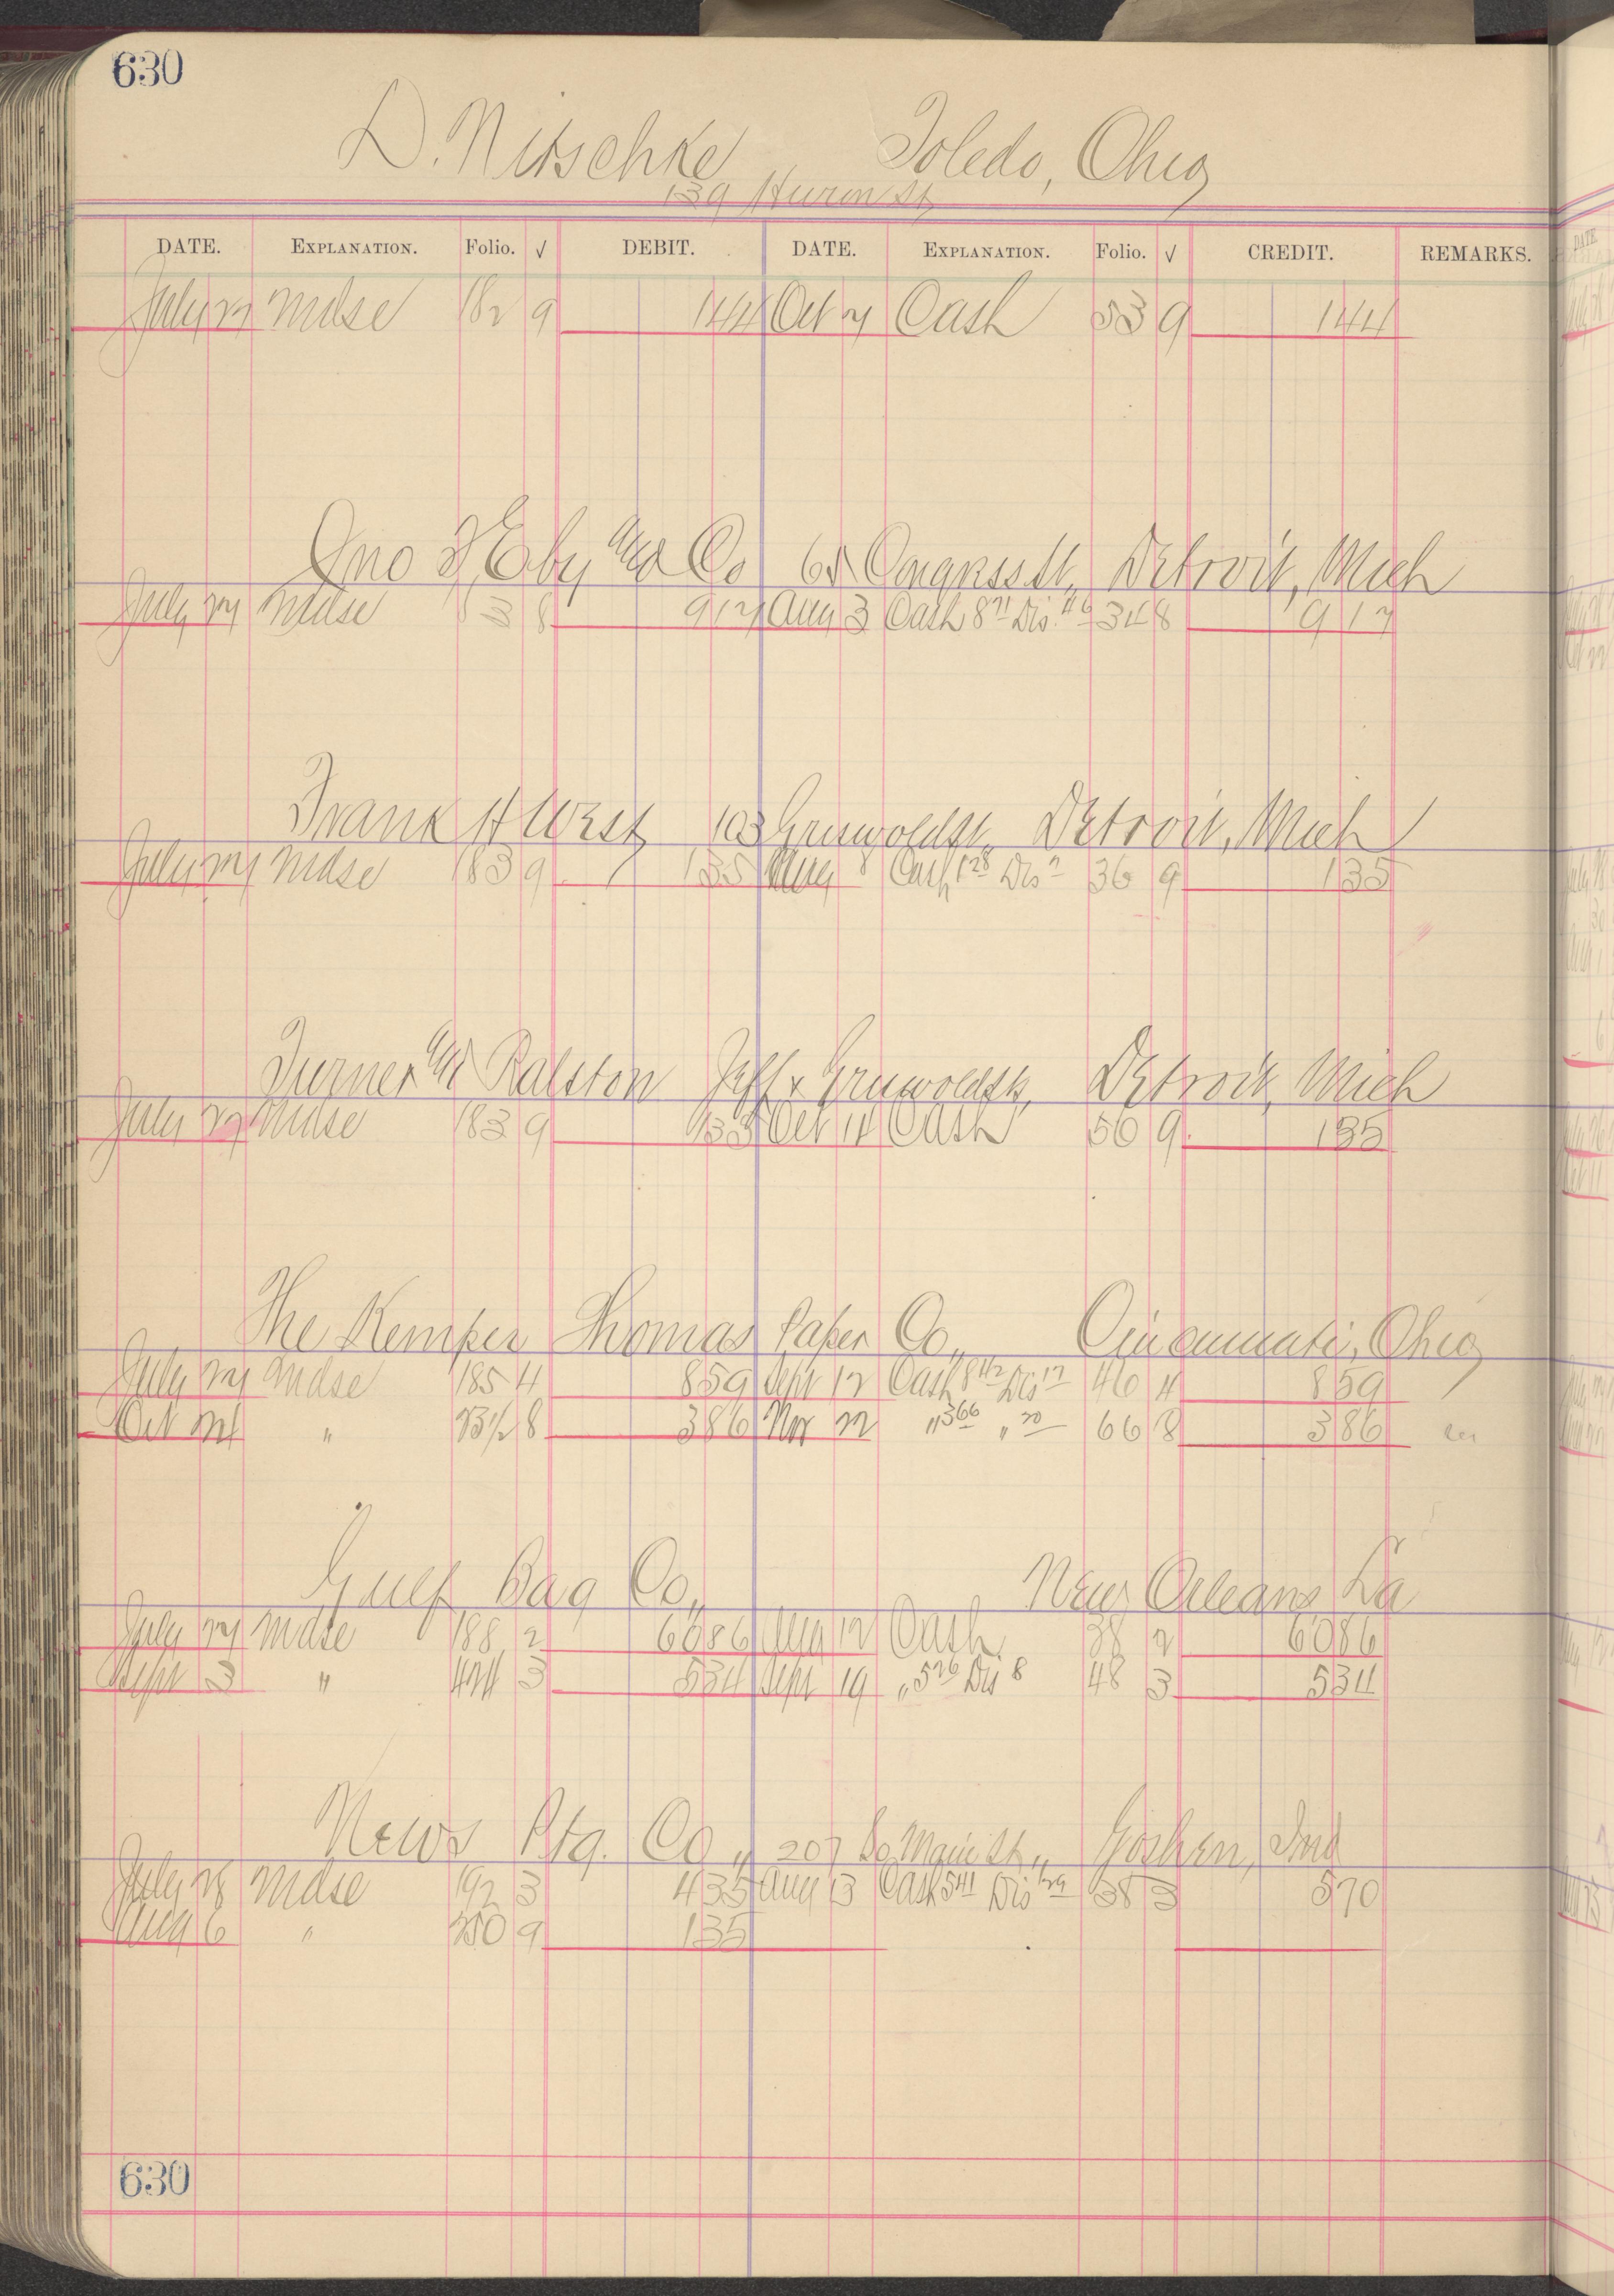 630
D. Nitschke Toledo, Ohio
139 Huron St
DATE. EXPLANATION. Folio. √ DEBIT. DATE. EXPLANATION. Folio. √ CREDIT. REMARKS.
July 27 Mdse 182 9 144 Oct 7 Cash 53 9 144
Jno Eby and Co 65 Congress St, Detroit, Mich
July 27 Mdse 183 8 917 Aug 3 Cash 8 71 Dis 46 34 8 917
Frank H West 103 Griswold St, Detroit, Mich
July 27 Mdse 183 9 135 Aug 8 Cash 1 28 Dis 7 36 9 135
Turner and Ralston Jeff & Griswold St, Detroit, Mich
July 27 Mdse 183 9 135 Oct 4 Cash 50 9 135
The Kemper Thomas Paper Co,, Cincinnati, Ohio
July 27 Mdse 185 4 859 Sept 12 Cash 8 42 Dis 17 46 4 859
Oct 24 " 8 386 Nov 22 " 3 66 " 20 66 8 386
Gulf Bag Co,, New Orleans La
July 27 Mdse 188 2 6086 Aug 12 Cash 38 2 6086
Sept 3 " 424 3 534 Sept 19 " 5 26 Dis 8 48 3 534
News Ptg. Co,, 207 So Main St,, Goshen, Ind
July 28 Mdse 192 3 435 Aug 13 Cash 5 41 Dis 29 38 3 570
Aug 6 " 250 9 135
630